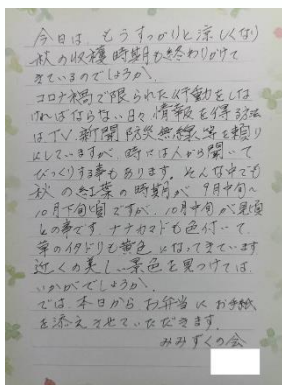 今日は、もうすっかりと涼しくなり
秋の収穫時期も終わりかけて
きているのでしょうか。
コロナ禍で限られた行動をしな
ければならない日々、情報を得る方法
はTV、新聞、防災無線等を頼り
にしていますが、時には人から聞いて
びっくりする事もあります。そんな中でも
秋の紅葉の時期が、9月中旬〜
10月下旬頃ですが、10月中旬が見頃
との事です。ナナカマドも色付いて、
草のイタドリも黄色になってきています。
近くの美しい景色を見つけては、
いかがでしょうか。
では、本日からお弁当にお手紙
を添えさせていただきます。
みみずくの会